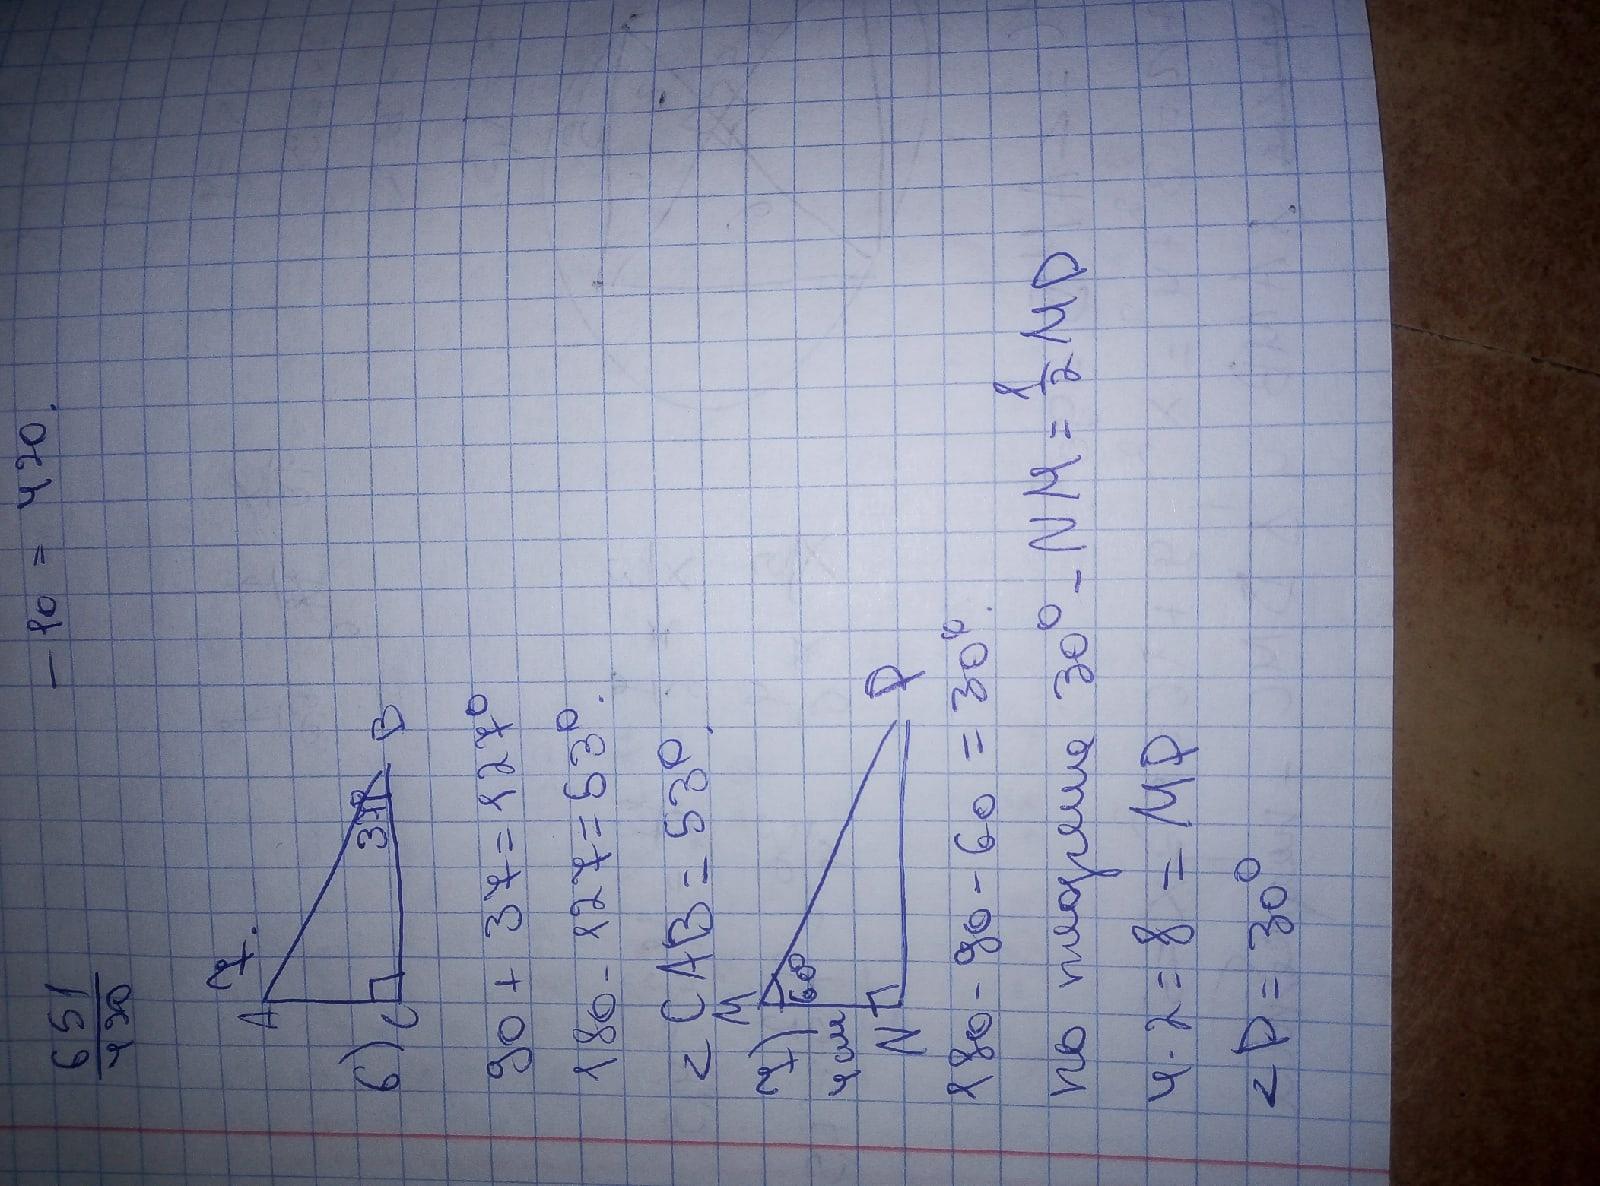 - 10 = 420.
651
420
7.
A
6) C 37° B
90 + 37 = 127°
180 - 127 = 53°.
∠CAB = 53°.
M
7) 60°
4см
N P
180 - 90 - 60 = 30°.
по теореме 30° - NM = 1/2 MP
4 · 2 = 8 = MP
∠P = 30°